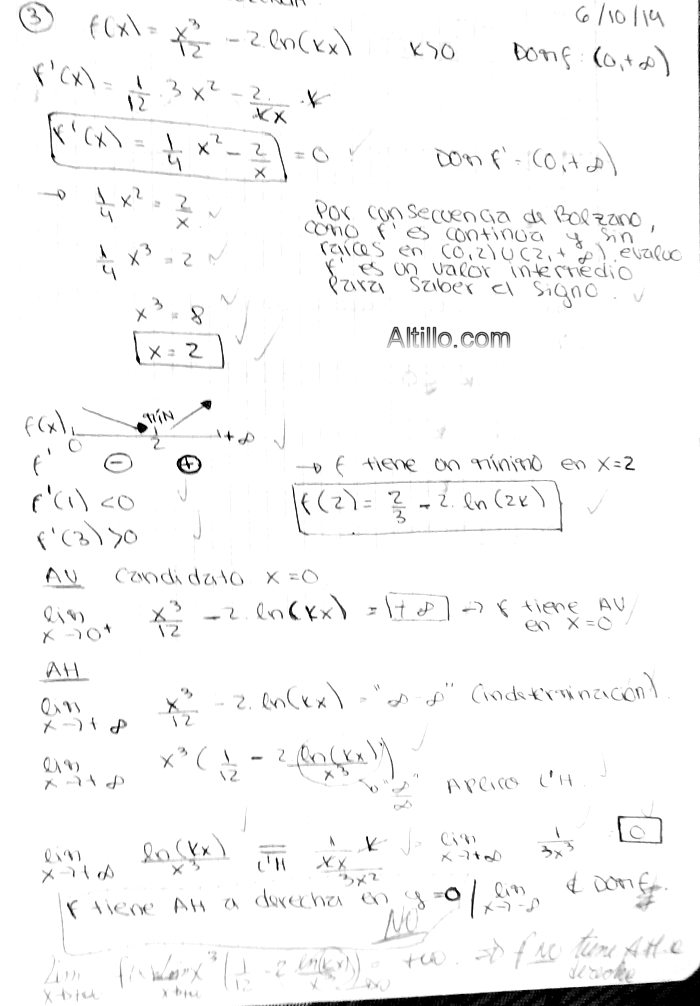 3 6/10/14
f(x) = x³/12 - 2 ln(kx) k>0 Dom f: (0,+∞)
f'(x) = 1/12 · 3x² - 2/kx · k
f'(x) = 1/4 x² - 2/x = 0 Dom f' = (0,+∞)
→ 1/4 x² = 2/x
1/4 x³ = 2
x³ = 8
x = 2
Por consecuencia de Bolzano,
como f' es continua y sin
raíces en (0,2)∪(2,+∞), evaluo
f' es un valor intermedio
para saber el signo.
Altillo.com
f(x) 0 MÍN 2 +∞
f' ⊖ ⊕
→ f tiene un mínimo en x=2
f'(1) <0
f(2) = 2/3 - 2 · ln(2k)
f'(3) >0
AV Candidato x=0
lim x→0+ x³/12 - 2 · ln(kx) = +∞ → f tiene AV
en x=0
AH
lim x→+∞ x³/12 - 2 · ln(kx) = "∞-∞" (indeterminación)
lim x→+∞ x³ (1/12 - 2 ln(kx)/x³)
→ "∞/∞" Aplico L'H
lim x→+∞ ln(kx)/x³ = L'H 1/kx · k / 3x² = lim x→+∞ 1/3x³ 0
f tiene AH a derecha en y=0 / lim x→-∞ ∉ Dom f.
NO
lim x→+∞ f(x) = lim x→+∞ x³ (1/12 - 2 ln(kx)/x³) = +∞ ⇒ f no tiene AH a
derecha